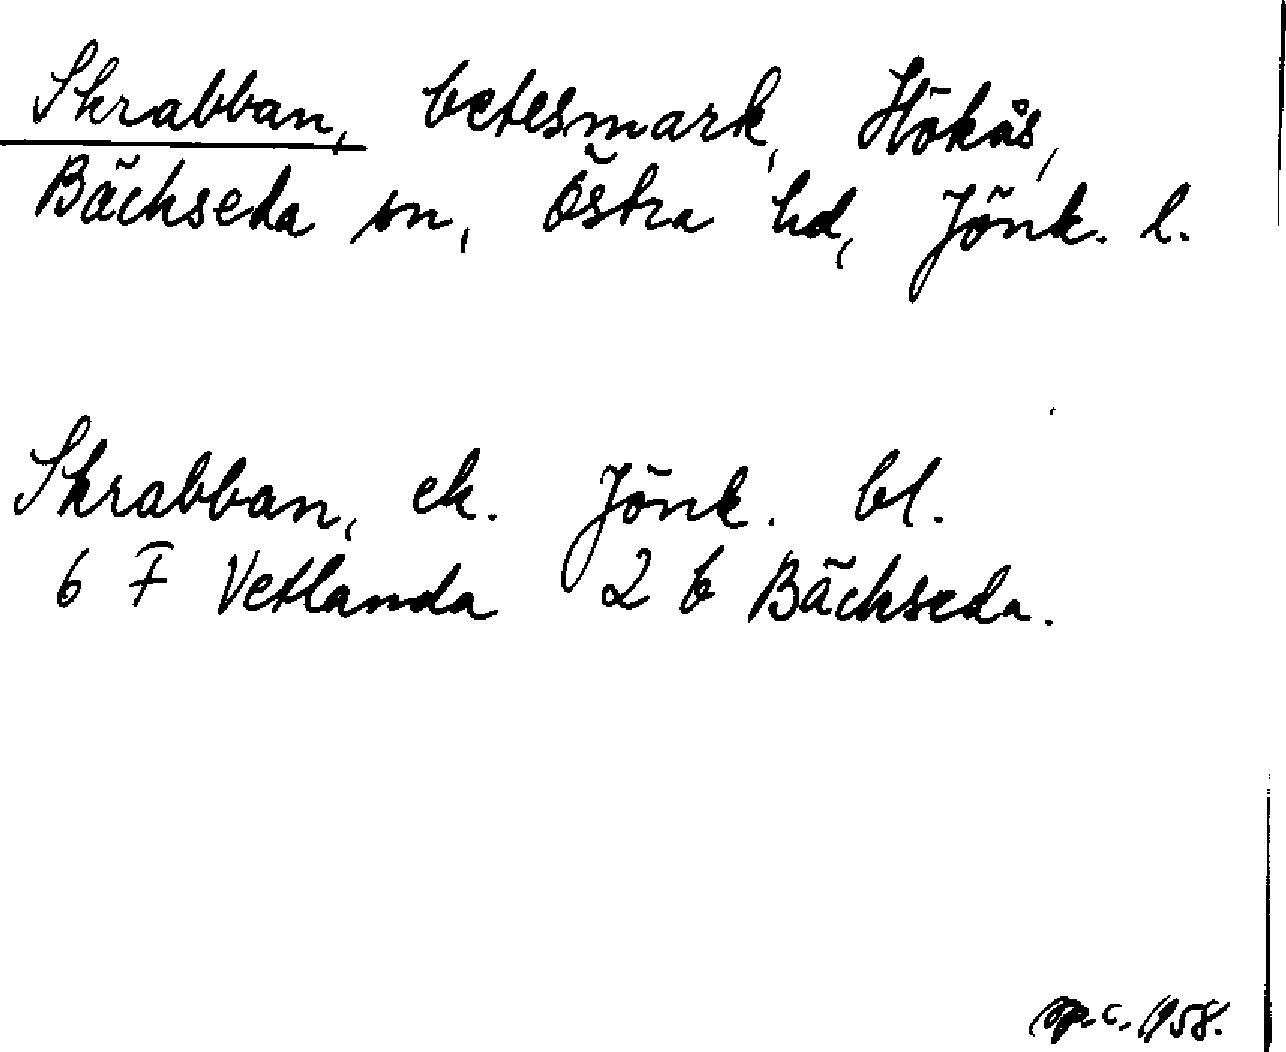 Skrabban, betesmark, Hökås,
Bäckseda sn, Östra hd, Jönk. l.
Skrabban, ek. Jönk. bl.
6 F Vetlanda 2 b Bäckseda.
c. 1958.